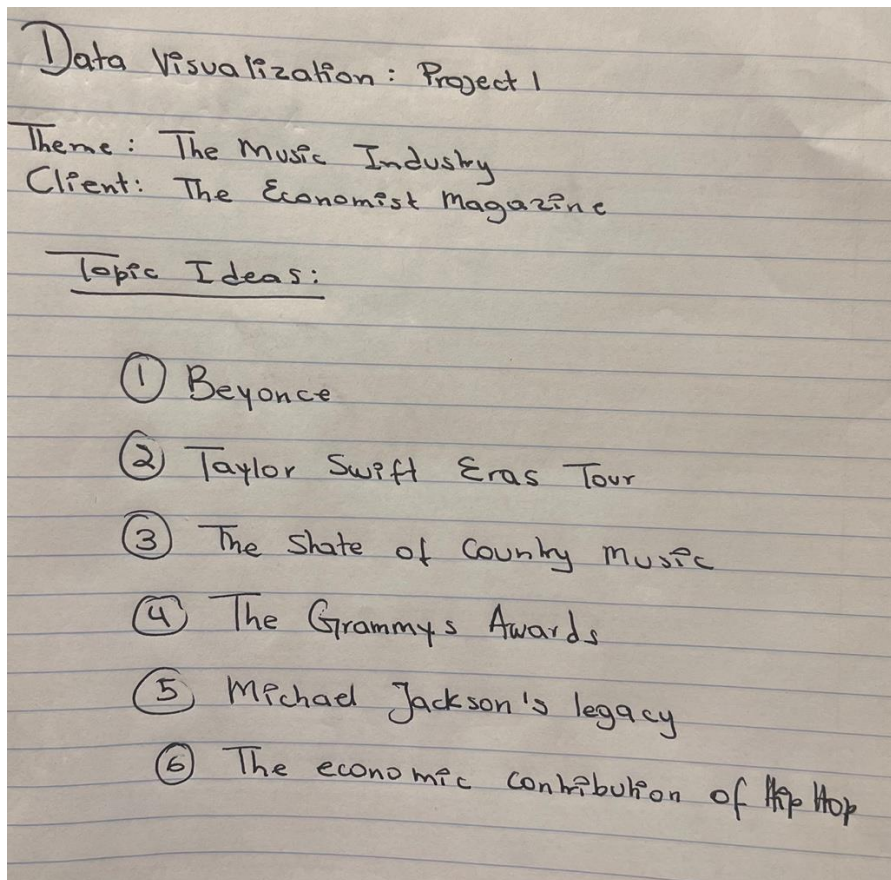 Data Visualization: Project 1
Theme: The Music Industry
Client: The Economist Magazine
Topic Ideas:
① Beyonce
② Taylor Swift Eras Tour
③ The State of Country Music
④ The Grammys Awards
⑤ Michael Jackson's legacy
⑥ The economic contribution of Hip Hop